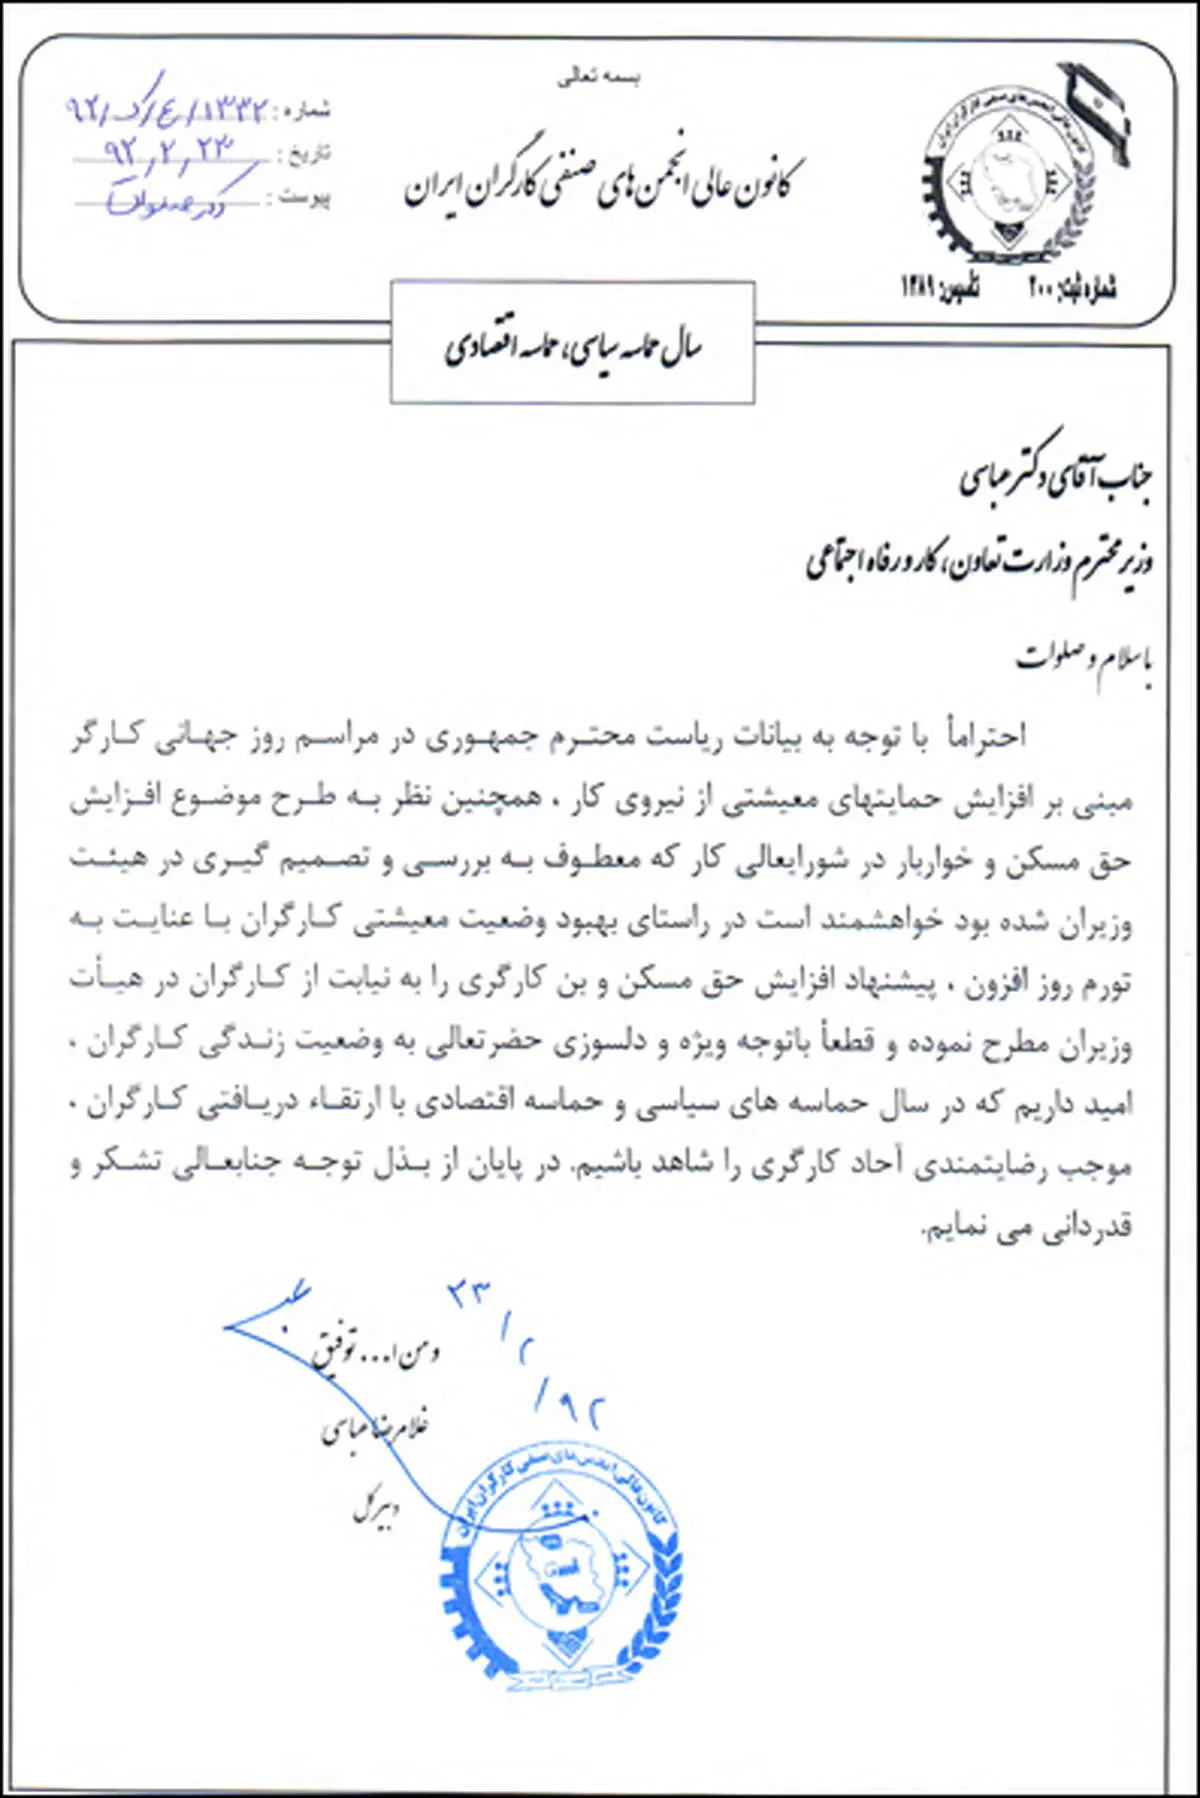 بسمه تعالی
کانون عالی انجمن های صنفی کارگران ایران
شماره: ۱۳۳۲/ع/ک/۹۲
تاریخ: ۹۲,۲,۲۳
پیوست:
کانون عالی انجمن های صنفی کارگران ایران
شماره ثبت: ۲۰۰ تأسیس: ۱۳۸۹
سال حماسه سیاسی، حماسه اقتصادی
جناب آقای دکتر عباسی
وزیر محترم وزارت تعاون، کار و رفاه اجتماعی
با سلام و صلوات
احتراماً با توجه به بیانات ریاست محترم جمهوری در مراسم روز جهانی کارگر
مبنی بر افزایش حمایتهای معیشتی از نیروی کار ، همچنین نظر به طرح موضوع افزایش
حق مسکن و خواربار در شورایعالی کار که معطوف به بررسی و تصمیم گیری در هیئت
وزیران شده بود خواهشمند است در راستای بهبود وضعیت معیشتی کارگران با عنایت به
تورم روز افزون ، پیشنهاد افزایش حق مسکن و بن کارگری را به نیابت از کارگران در هیأت
وزیران مطرح نموده و قطعاً باتوجه ویژه و دلسوزی حضرتعالی به وضعیت زندگی کارگران ،
امید داریم که در سال حماسه های سیاسی و حماسه اقتصادی با ارتقاء دریافتی کارگران ،
موجب رضایتمندی آحاد کارگری را شاهد باشیم. در پایان از بذل توجه جنابعالی تشکر و
قدردانی می نمایم.
۲۳/۲/۹۲
و من ا... توفیق
غلامرضا عباسی
دبیرکل
کانون عالی انجمن های صنفی کارگران ایران